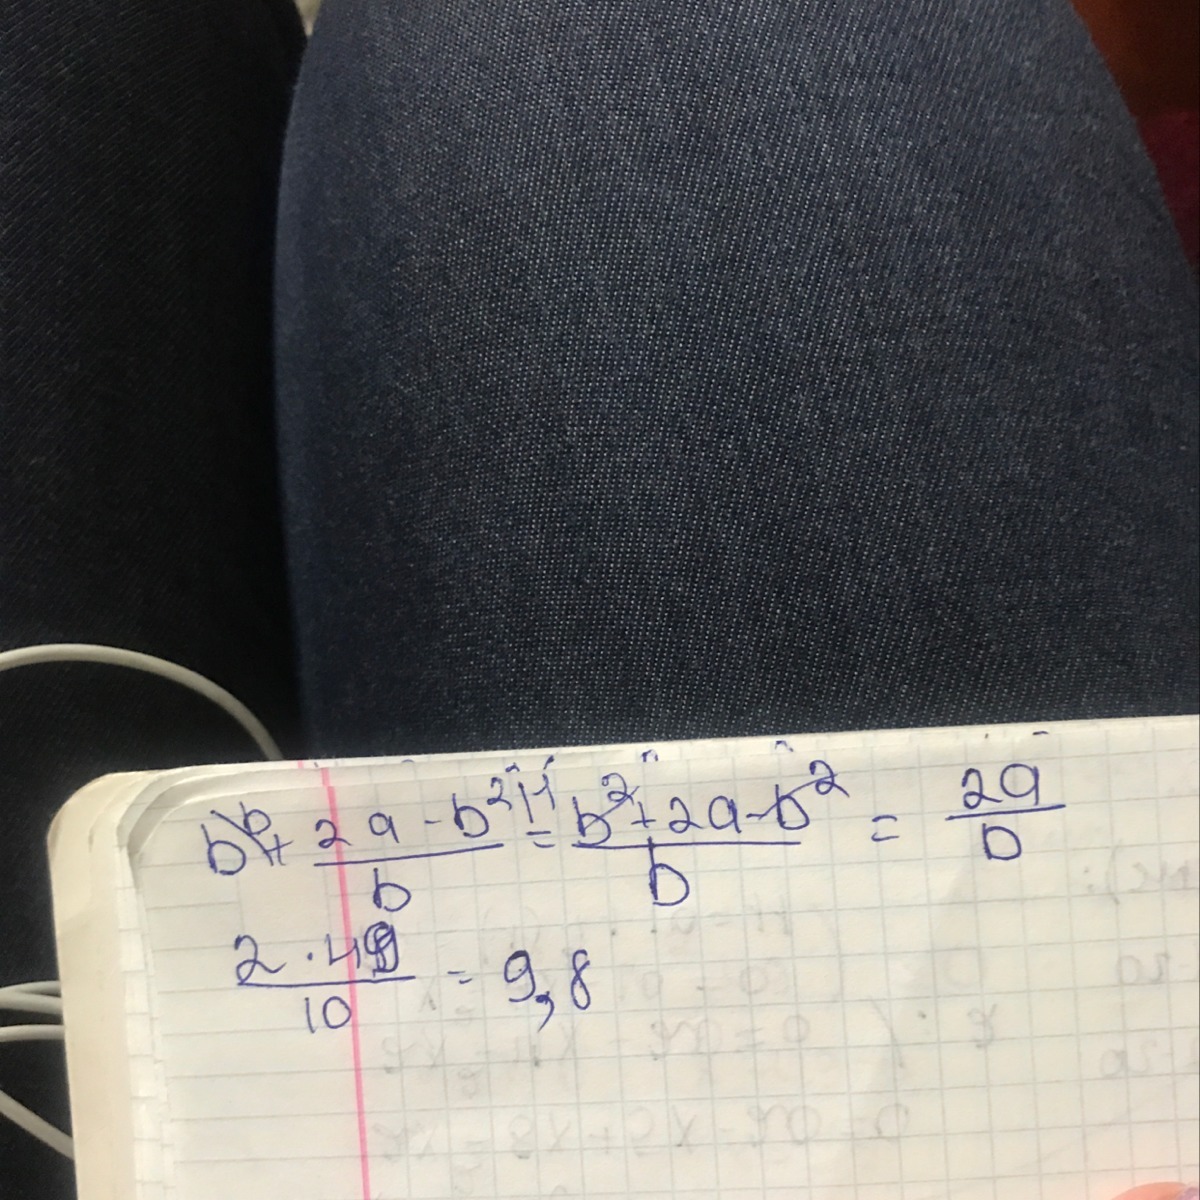 b + (2a - b²)/b = (b² + 2a - b²)/b = 2a/b
(2 · 49)/10 = 9,8